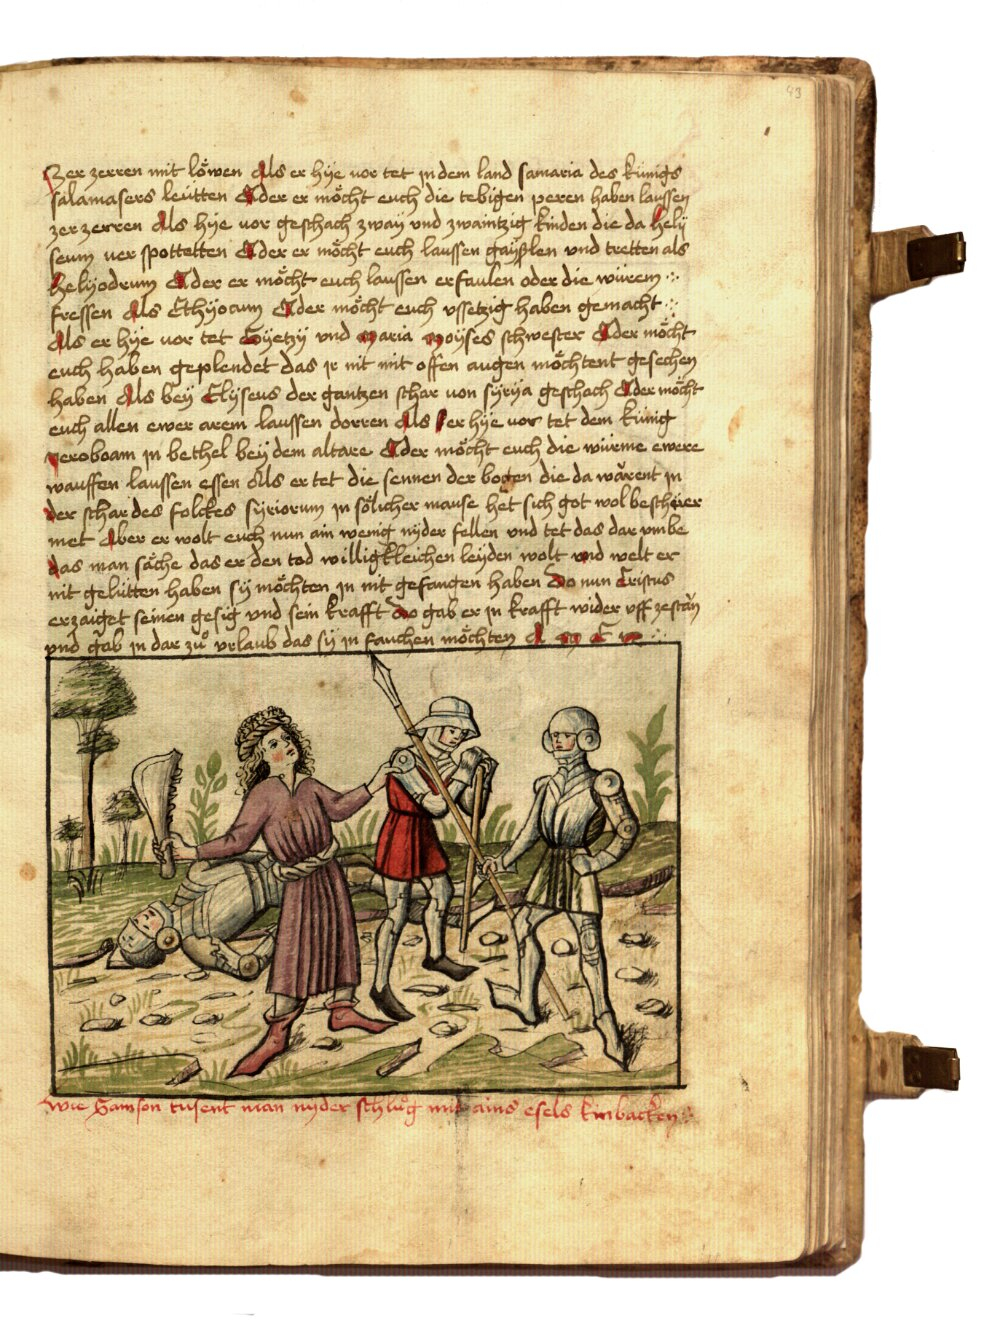 43
Zer zerren mit löwen Als er hÿe vor tet in dem land samaria des künigs
salamasers leütten Oder er möcht euch die tebigen peren haben laussen
zerzerren Als hÿe vor geschach zwaÿ und zwaintzig kinden die da helÿ
seum ver spottetten Oder er möcht euch laussen gaÿßlen und tretten als
helÿodrum Oder er möcht euch laussen erfaulen oder die würem
fressen Als Ethÿocum Oder möcht euch ussetzig haben gemacht
Als er hÿe vor tet Gÿetzÿ und maria moÿses schwester Oder möcht
euch haben geplendet das jr nit mit offen augen möchtent gesechen
haben Als beÿ Elÿseus der gantzen schar von sÿrÿa geschach Oder möcht
euch allen ewer arem laussen dorren Als er hÿe vor tet dem künig
Jeroboam jn bethel beÿ dem altare Oder möcht euch die würme ewere
wauffen laussen essen Als er tet die sennen der bogen die da wärent jn
der schar des folckes sÿriorum jn sölicher mause het sich got wol beschier
met Aber er wolt euch nun ain wenig nÿder fellen und tet das dar umbe
das man säche das er den tod willigkleichen leÿden wolt und welt er
nit gelütten haben sÿ möchten jn nit gefangen haben Do nun Cristus
erzaiget seinen gesig und sein krafft Do gab er jn krafft wider uff zestän
und gab jn dar zů urlaub das sÿ jn fauchen möchten A M E N
Wie Samson tusent man nÿder schlůg mit ains esels kinbacken